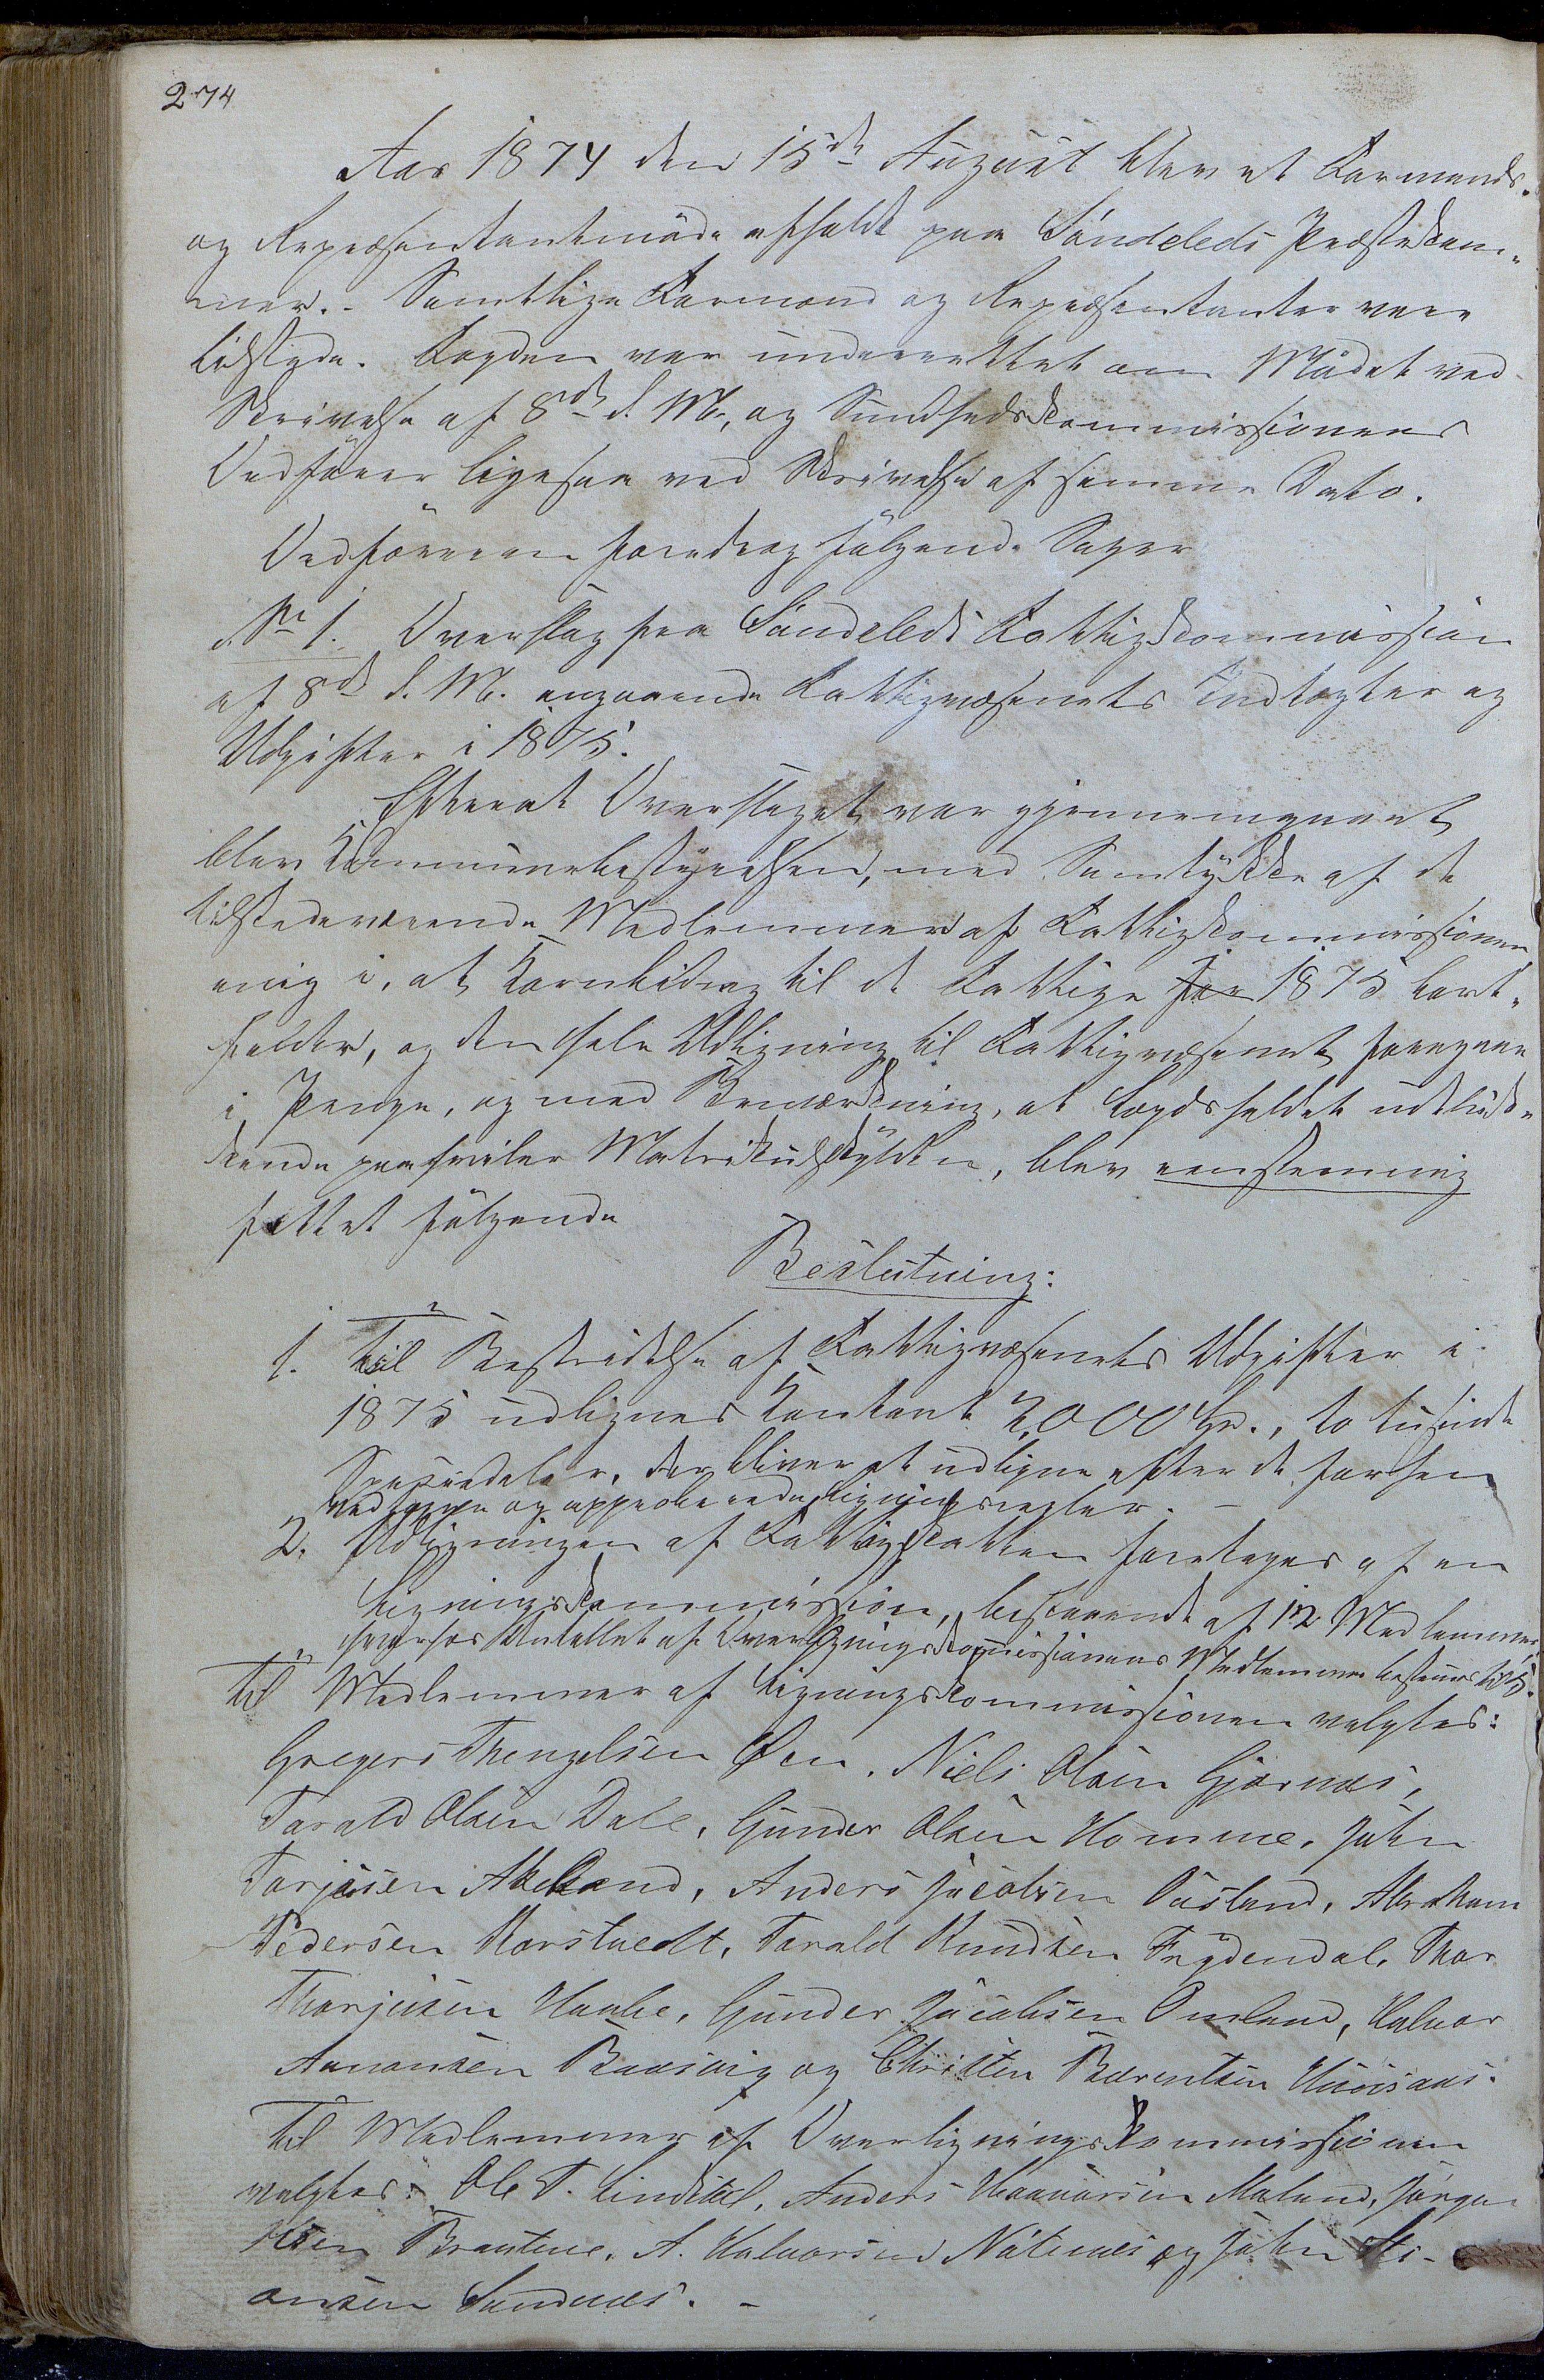 274
Aar 1874 den 15de August blev et Formands-
og Repræsentantmöde afholdt paa Söndeleds Præstekam-
mer. - Samtlige Formænd og Repræsentanter vare
tilstede. Fogden var underrettet om Mödet ved
Skrivelse af 8de d. M., og Sundhedskommissionens
Ordförer ligesaa ved Skrivelse af samme Dato.
Ordföreren foredrog fölgende Sager
No 1. Overslag fra Söndeleds Fattigkommission
af 8de d. M. angaaende Fattigvæsenets Indtægter og
Udgifter i 1875.
Efterat Overslaget var gjennemgaaet
blev Kommunebestyrelsen, med Samtykke af de
tilstedeværende Medlemmer af Fattigkommissionen
enig i, at Kornbidrag til de Fattige for 1875 bort-
falder, og den hele Udligning til Fattigvæsenet foregaar
i Penge, og med Bemærkning, at Lægdsholdet udeluk-
kende paahviler Matrikulskylden, blev eenstemmig
fattet fölgende
Beslutning:
1. Til Bestridelse af Fattigvæsenets Udgifter i
1875 udlignes Kontant 2,000 Spd., to tusinde
Speciedaler, der bliver at udligne efter de forhen
vedtagne og approberede Ligningsregler. -
2. Udligningen af Fattigskatten foretages af en
Ligningskommission, bestaaende af 12 Medlemmer,
hvorhos Antallet af Overligningskommissionens Medlemmer bestemmes til 5.
Til Medlemmer af Ligningskommissionen valgtes:
Gregers Thengelsen Øen, Niels Olsen Gjernæs,
Tarald Olsen Dale, Gunder Olsen Homme, John
Tarjesen Akeland, Anders Jacobsen Øisland, Abraham
Pedersen Barstvedt, Tarald Knudsen Frydendal, Thor
Thorjusen Haabe, Gunder Jacobsen Omland, Halvor
Aanonsen Baasvig og Christen Bærentsen Huusaas.
Til Medlemmer af Overligningskommissionen
valgtes: Ole T. Lindstøl, Anders Haavorsen Moland, Jörgen
Brantene, A. Halvorsen Nátnæs og John As-
onsen Sandnæs. -